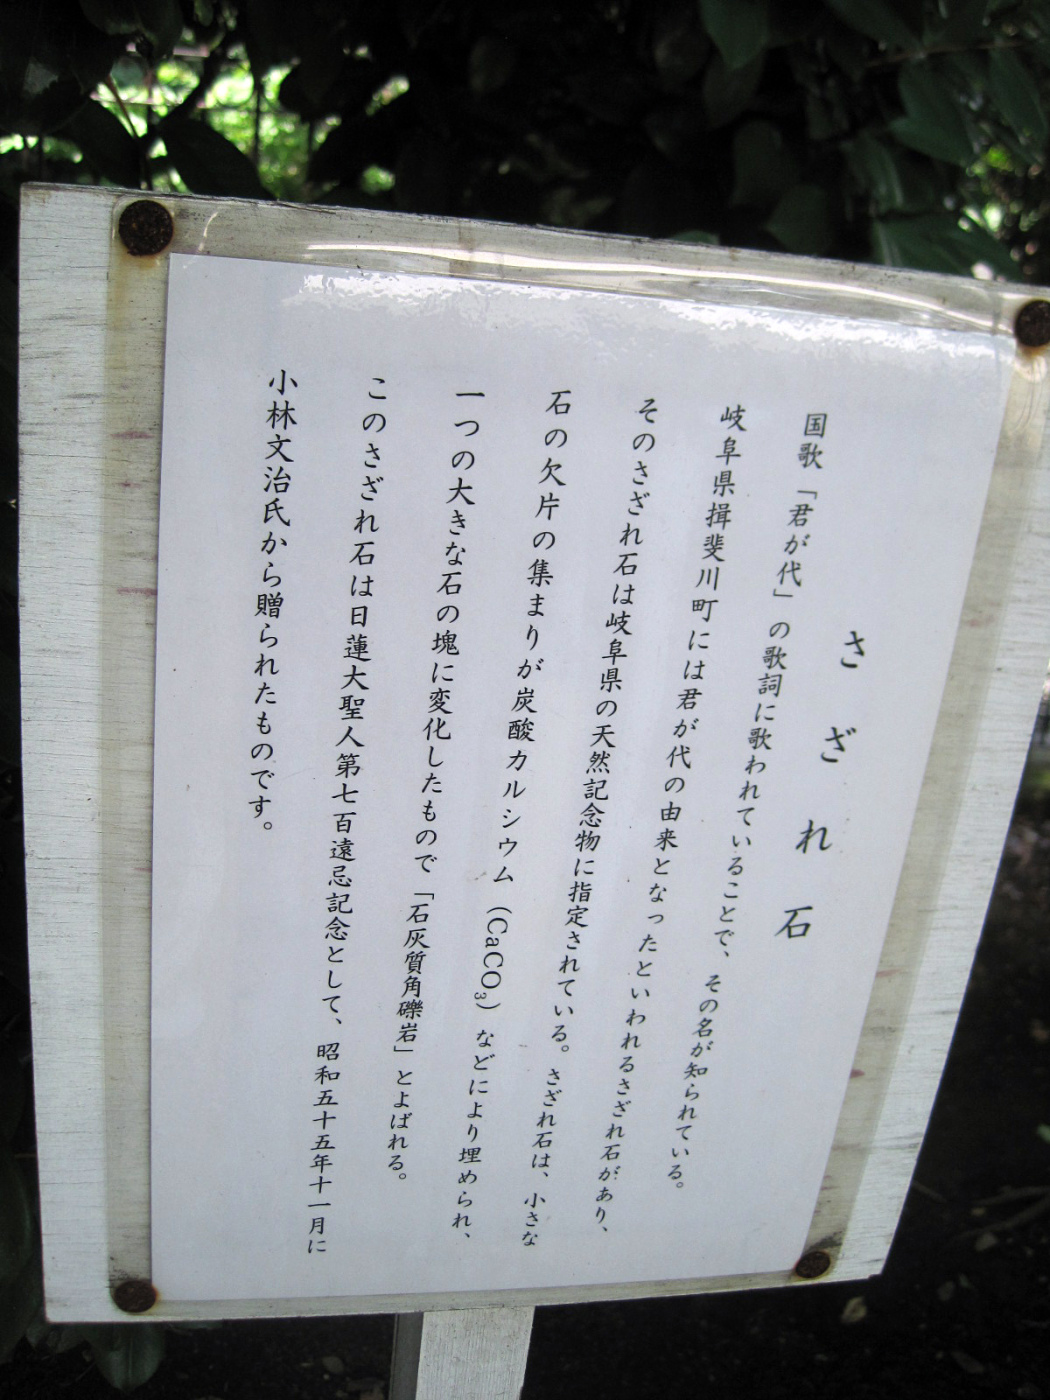 さざれ石
国歌「君が代」の歌詞に歌われていることで、その名が知られている。
岐阜県揖斐川町には君が代の由来となったといわれるさざれ石があり、
そのさざれ石は岐阜県の天然記念物に指定されている。さざれ石は、小さな
石の欠片の集まりが炭酸カルシウム(CaCO₃)などにより埋められ、
一つの大きな石の塊に変化したもので「石灰質角礫岩」とよばれる。
このさざれ石は日蓮大聖人第七百遠忌記念として、昭和五十五年十一月に
小林文治氏から贈られたものです。